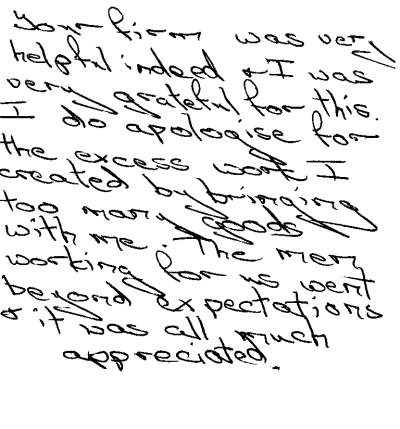 Your firm was very
helpful indeed & I was
very grateful for this.
I do apologise for
the excess work I
created by bringing
too many goods
with me. The men
working for us went
beyond expectations
& it was all much
appreciated.